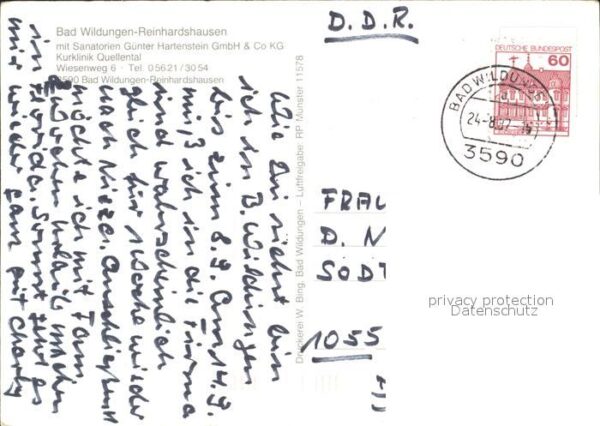 Bad Wildungen-Reinhardshausen
mit Sanatorien Günter Hartenstein GmbH & Co KG
Kurklinik Quellental
Wiesenweg 6 · Tel. 05621/3054
3590 Bad Wildungen-Reinhardshausen
D.D.R.
DEUTSCHE BUNDESPOST
60
BAD WILDUNGEN
24.-8.
3590
Wie Du siehst bin
ich in B. Wildungen
bis zum 8.9. Am 14.9.
muß ich in die Firma
und wahrscheinlich
gleich für 1 Woche wieder
nach Anschließend
möchte ich mit Fam
2 Wochen Urlaub machen
in Sonst geht es
mir wieder ganz gut
Druckerei W. Bing, Bad Wildungen – Luftfreigabe: RP Münster 11578
FRAU
D. N
SODT
1055
privacy protection
Datenschutz